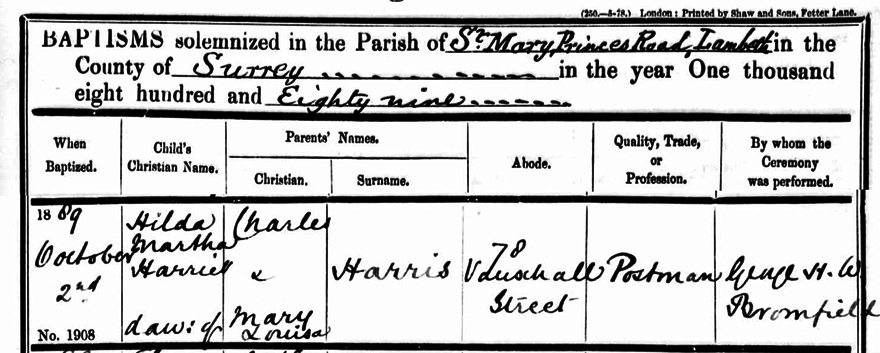 (250.—5-78.) London: Printed by Shaw and Sons, Fetter Lane.
BAPTISMS solemnized in the Parish of St. Mary, Princes Road, Lambeth in the
County of Surrey in the year One thousand
eight hundred and Eighty nine
When Baptized.
Child's Christian Name.
Parents' Names.
Christian.
Surname.
Abode.
Quality, Trade, or Profession.
By whom the Ceremony was performed.
1889
October
2nd
No. 1908
Hilda
Martha
Harriet
daur: of
Charles
&
Mary
Louisa
Harris
78
Vauxhall
Street
Postman
George H. W.
Bromfield